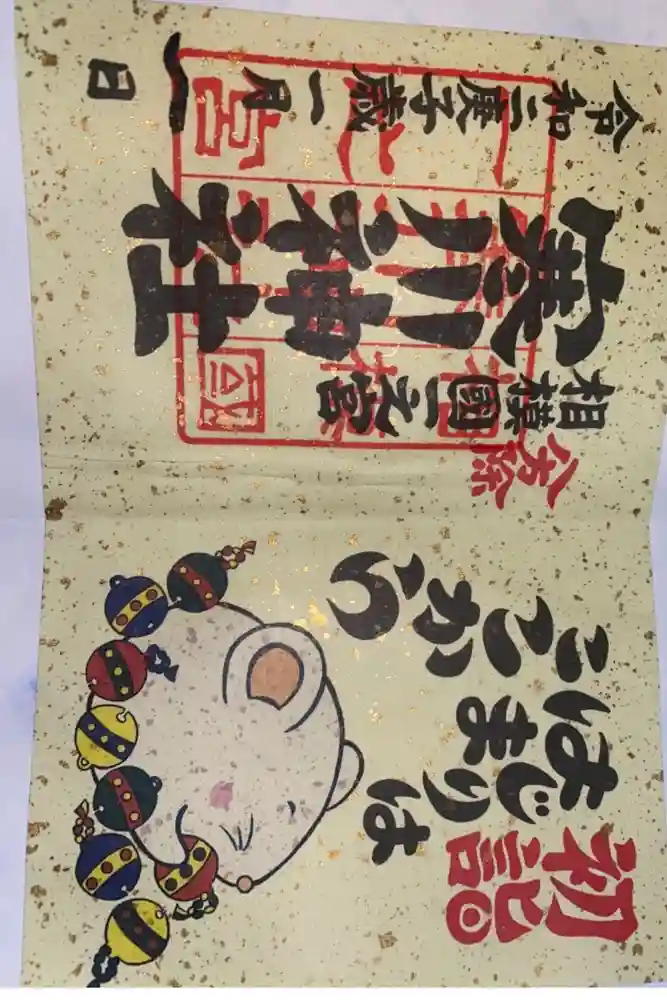 初詣
はじまりは
ここから
八方除
相模國一之宮
寒川神社
令和二庚子歳一月一日